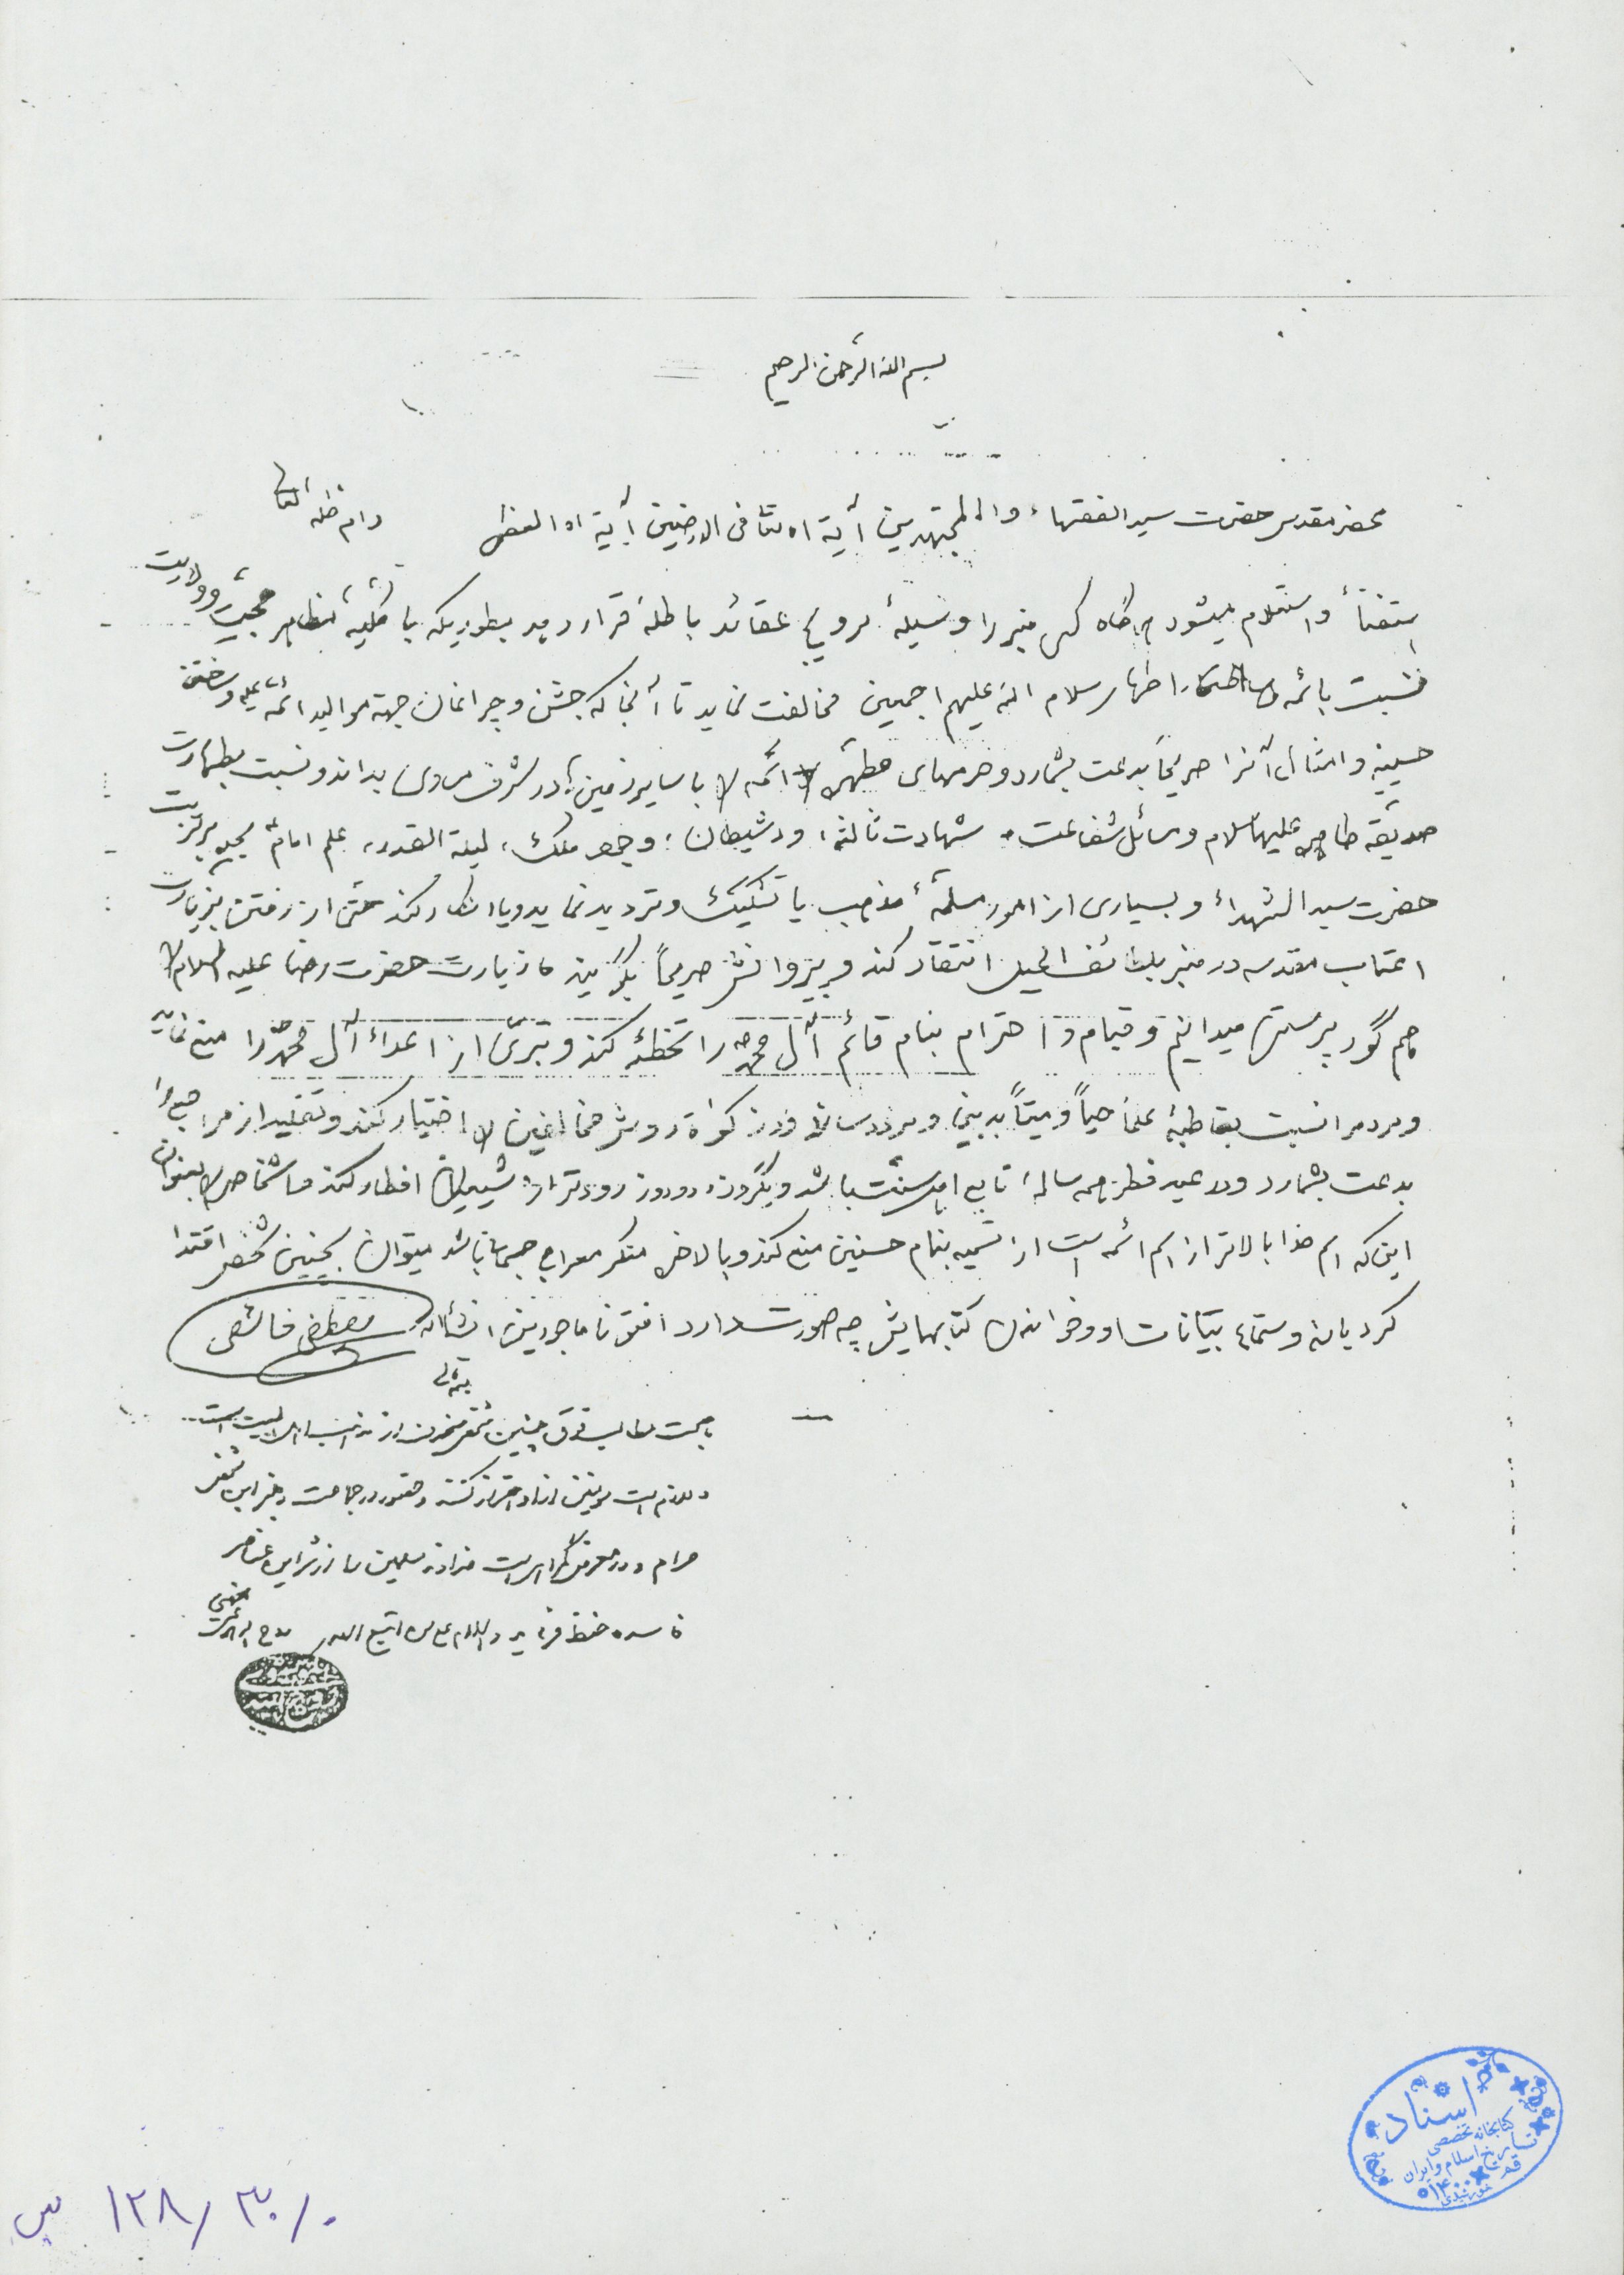 بسم الله الرحمن الرحیم
محضر مقدس حضرت سید الفقهاء والمجتهدین آیة الله فی الارضین آیة الله العظمی دام ظله العالی
استفتاأ و استعلام میشود هرگاه کسی منبر را وسیلهٔ ترویج عقائد باطله قرار دهد بطوریکه با کلیهٔ مظاهر محبت و ولایت
نسبت بائمه اطهار سلام الله علیهم اجمعین مخالفت نماید تا آنجا که جشن و چراغان جهة موالید ائمه و ساختن
حسینیه و امثال آنرا صریحاً بدعت بشمارد و حرمهای مطهر ائمه را با سایر زمین ها در شرف مساوی بداند و نسبت بطهارت
صدیقه طاهره علیها سلام و مسائل شفاعت، شهادت ثالثه، ورد شیطان، وجود ملک، لیلة القدر، علم امام بجزئیات
حضرت سید الشهداأ و بسیاری از امور مسلمهٔ مذهب یا تشکیک و تردید نماید و یا انکار کند حتی از رفتن بزیارت
اعتاب مقدسه در منبر بلطائف الحیل انتقاد کند و پیروانش صریحاً بگویند ما زیارت حضرت رضا علیه السلام را
هم گور پرستی میدانیم و قیام و احترام بنام قائم آل محمد را تخطئه کند و تبری از اعداء آل محمد را منع نماید
و مردم را نسبت بقاطبهٔ علما حیاً و میتاً بدبین و در زکوة روش مخالفین را اختیار کند و تقلید از مراجع را
بدعت بشمارد و در عید فطر همه ساله تابع اهل سنت باشد و یکروز، دو روز زودتر از شیعیان افطار کند و اشخاص را بعنوان
این که اسم خدا بالاتر از اسم ائمه است از تسمیه بنام حسنین منع کند و بالاخره منکر معراج جسمانی باشد میتوان بچنین شخصی اقتدا
کرد یا نه و استماع بیانات او و خواندن کتابهایش چه صورت دارد افتونا ماجورین انشاالله مصطفی
بسمه تعالی
با صحت مطالب فوق چنین شخص منحرف از مذهب اهل البیت است
و لازم است مؤمنین از او احتراز کنند و حضور در جماعت و منبر این شخص
حرام و در معرض گمراهی است خداوند مسلمین را از شر این عناصر
فاسده حفظ فرماید والسلام علی من اتبع الهدی
اسناد
کتابخانه تخصصی
تاریخ اسلام و ایران
قم
۱۲۸/۳۰/۰ س